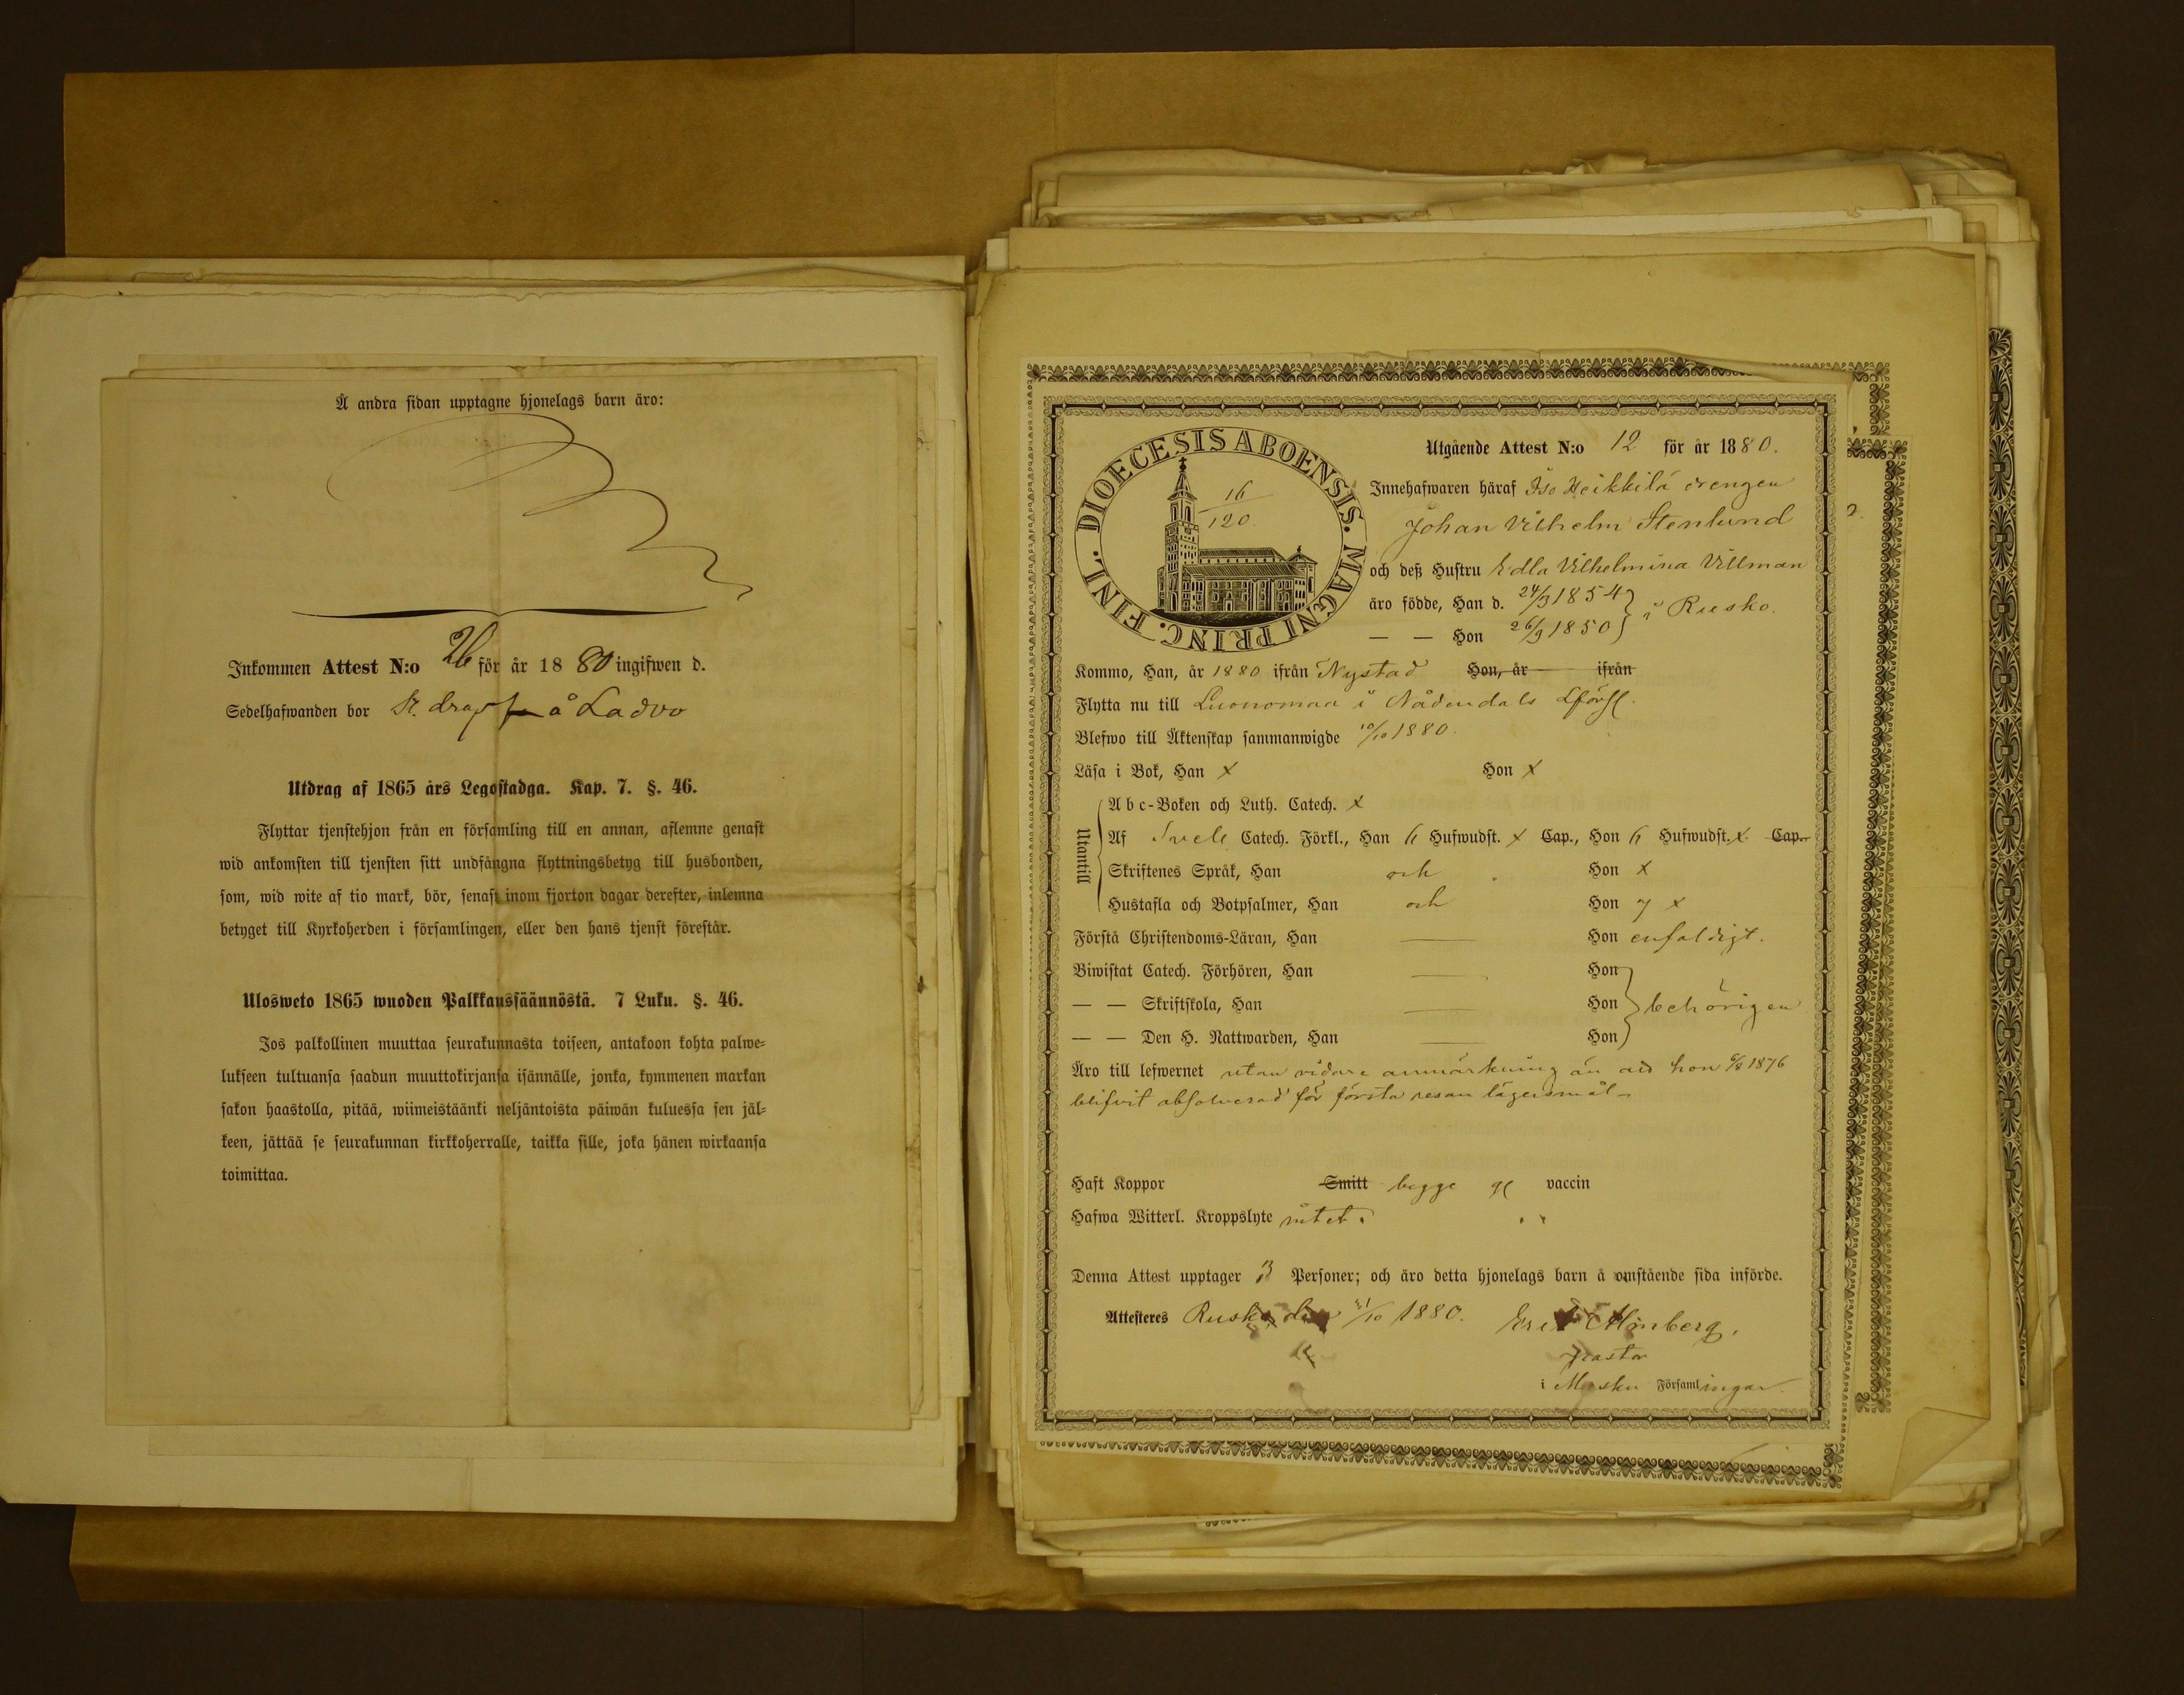 Å andra sidan upptagne hjonelags barn äro:
Inkommen Attest N:o 26 för år 1880 ingifwen d.
Sedelhafwanden bor St. å Ladvo
Utdrag af 1865 års Legostadga. Kap. 7. §. 46.
Flyttar tjenstehjon från en församling till en annan, aflemne genast
wid ankomsten till tjensten sitt undfångna flyttningsbetyg till husbonden,
som, wid wite af tio mark, bör, senast inom fjorton dagar derefter, inlemna
betyget till Kyrkoherden i församlingen, eller den hans tjenst förestår.
Ulosweto 1865 wuoden Palkkaussäännöstä. 7 Luku. §. 46.
Jos palkollinen muuttaa seurakunnasta toiseen, antakoon kohta palwe=
lukseen tultuansa saadun muuttokirjansa isännälle, jonka, kymmenen markan
sakon haastolla, pitää, wiimeistäänki neljäntoista päiwän kuluessa sen jäl=
keen, jättää se seurakunnan kirkkoherralle, taikka sille, joka hänen wirkaansa
toimittaa.
DIOECESIS ABOENSIS. MAGNI PRINC. FINL.
16
120.
Utgående Attest N:o 12 för år 1880.
Innehafwaren häraf Iso Heikkilä drengen
Johan Vilhelm Stenlund
och deß Hustru Edla Vilhelmina Villman
äro födde, Han d. 24/9 1854 } i Rusko.
— — Hon 26/9 1850
Kommo, Han, år 1880 ifrån Nystad Hon, år ifrån
Flytta nu till Luonomaa i Nådendals Lförs.
Blefwo till Äktenskap sammanwigde 10/10 1880.
Läsa i Bok, Han x Hon x
Utantill
Abc-Boken och Luth. Catech. x
Af Sveb Catech. Förkl., Han 6 Hufwudst. x Cap., Hon 6 Hufwudst. x Cap.
Skriftenes Språk, Han och Hon x
Hustafla och Botpsalmer, Han och Hon 7 x
Förstå Christendoms-Läran, Han — Hon enfaldigt.
Biwistat Catech. Förhören, Han — Hon
— — Skriftskola, Han — Hon } behörigen
— — Den H. Nattwarden, Han — Hon
Äro till lefwernet utan vidare anmärkning än att hon 6/8 1876
blifvit absolverad för första resan lägersmål—
Haft Koppor Smitt begge gl vaccin
Hafwa Witterl. Kroppslyte intet.
Denna Attest upptager 3 Personer; och äro detta hjonelags barn å omstående sida införde.
Attesteres Rusko den 21/10 1880. Alonberg,
Pastor
i Masku Församlingar.